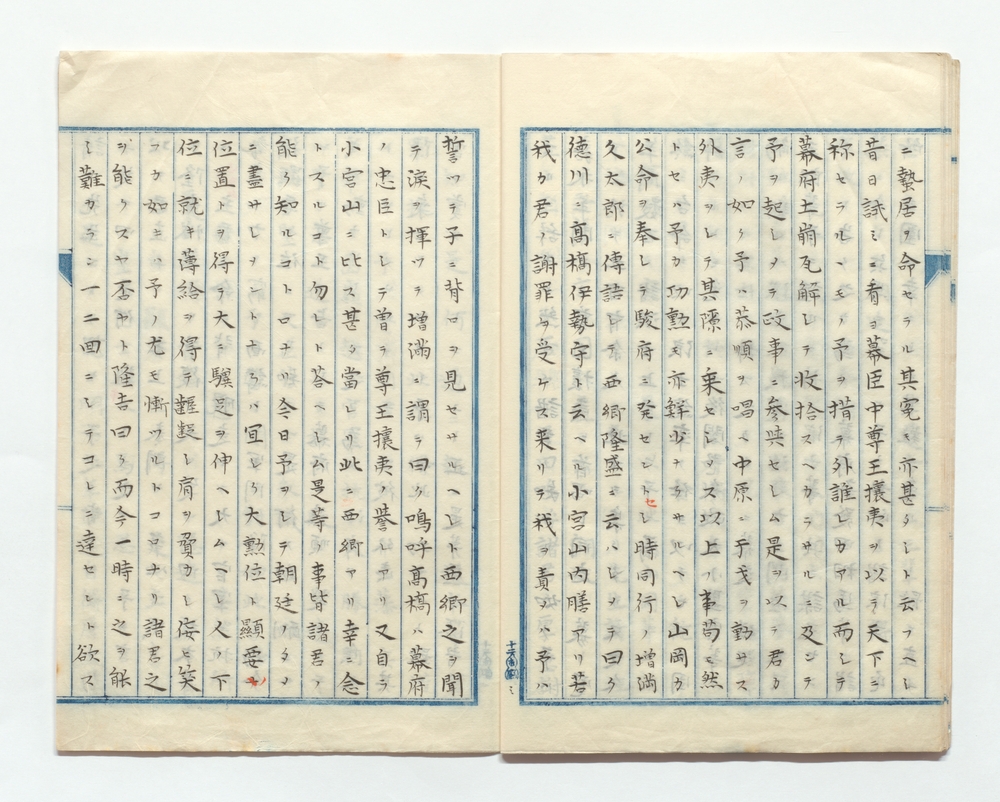 ニ蟄居ヲ命セラル其寃モ亦甚タシト云フヘシ
昔日試ミニ看ヨ幕臣中尊王攘夷ヲ以テ天下ニ
称セラルヽモノ予ヲ措テ外誰レカアル而シテ
幕府土崩瓦解シテ收拾スヘカラサルニ及ンテ
予ヲ起シメテ政事ニ参與セシム是ヲ以テ君カ
言ノ如ク予ハ恭順ヲ唱ヘ中原ニ干戈ヲ動サス
外夷ヲシテ其隙ニ乗セシメス以上ノ事苟モ然
トセハ予カ功勲モ亦鮮少ナラサルヘシ山岡カ
公命ヲ奉シテ駿府ニ発セントセシ時同行ノ増満
久太郎ニ傳語シテ西郷隆盛ニ云ハシメテ曰ク
徳川ニ高槗伊勢守ト云ヘル小宮山内膳アリ若
我カ君ノ謝罪ヲ受ケス来リテ我ヲ責メハ予ハ
誓ツテ子ニ背ロヲ見セサルヘシト西郷之ヲ聞
テ涙ヲ揮ツテ増満ニ謂テ曰ク嗚呼高槗ハ幕府
ノ忠臣トシテ曽テ尊王攘夷ノ譽レアリ又自ラ
小宮山ニ比ス甚タ當レリ此ニ西郷アリ幸ニ念
トスルコト勿レト荅ヘシム是等ノ事皆諸君ノ
能ク知ルトロナリ今日予ヲシテ朝廷ノタメ
ニ盡サシメントナラハ宜シク大勲位ト顯要ノ
位置トヲ得テ大ニ驥足ヲ伸ヘシムヘシ人ノ下
位ニ就キ薄給ヲ得テ齷齪シ肩ヲ聳カシ侫シ笑
フカ如キハ予ノ尤モ慚ツルトコロナリ諸君之
ヲ能クスヤ否ヤト隆吉曰ク而今一時ニ之ヲ能
シ難カラン一二回ニシテコレニ達セント欲ス
十六